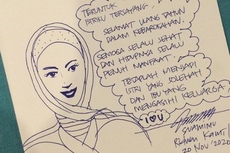 TERUNTUK
ISTRIKU TERSAYANG.
SELAMAT ULANG TAHUN
DALAM KEBAROKAHAN.
SEMOGA SELALU SEHAT
DAN HIDUPNYA SELALU
PENUH MANFAAT.
TETAPLAH MENJADI
ISTRI YANG SOLEHAH
DAN IBU YANG
MENGASIHI KELUARGA.
I ♡ U
SUAMIMU
Ridwan Kamil
20 NOV 2020